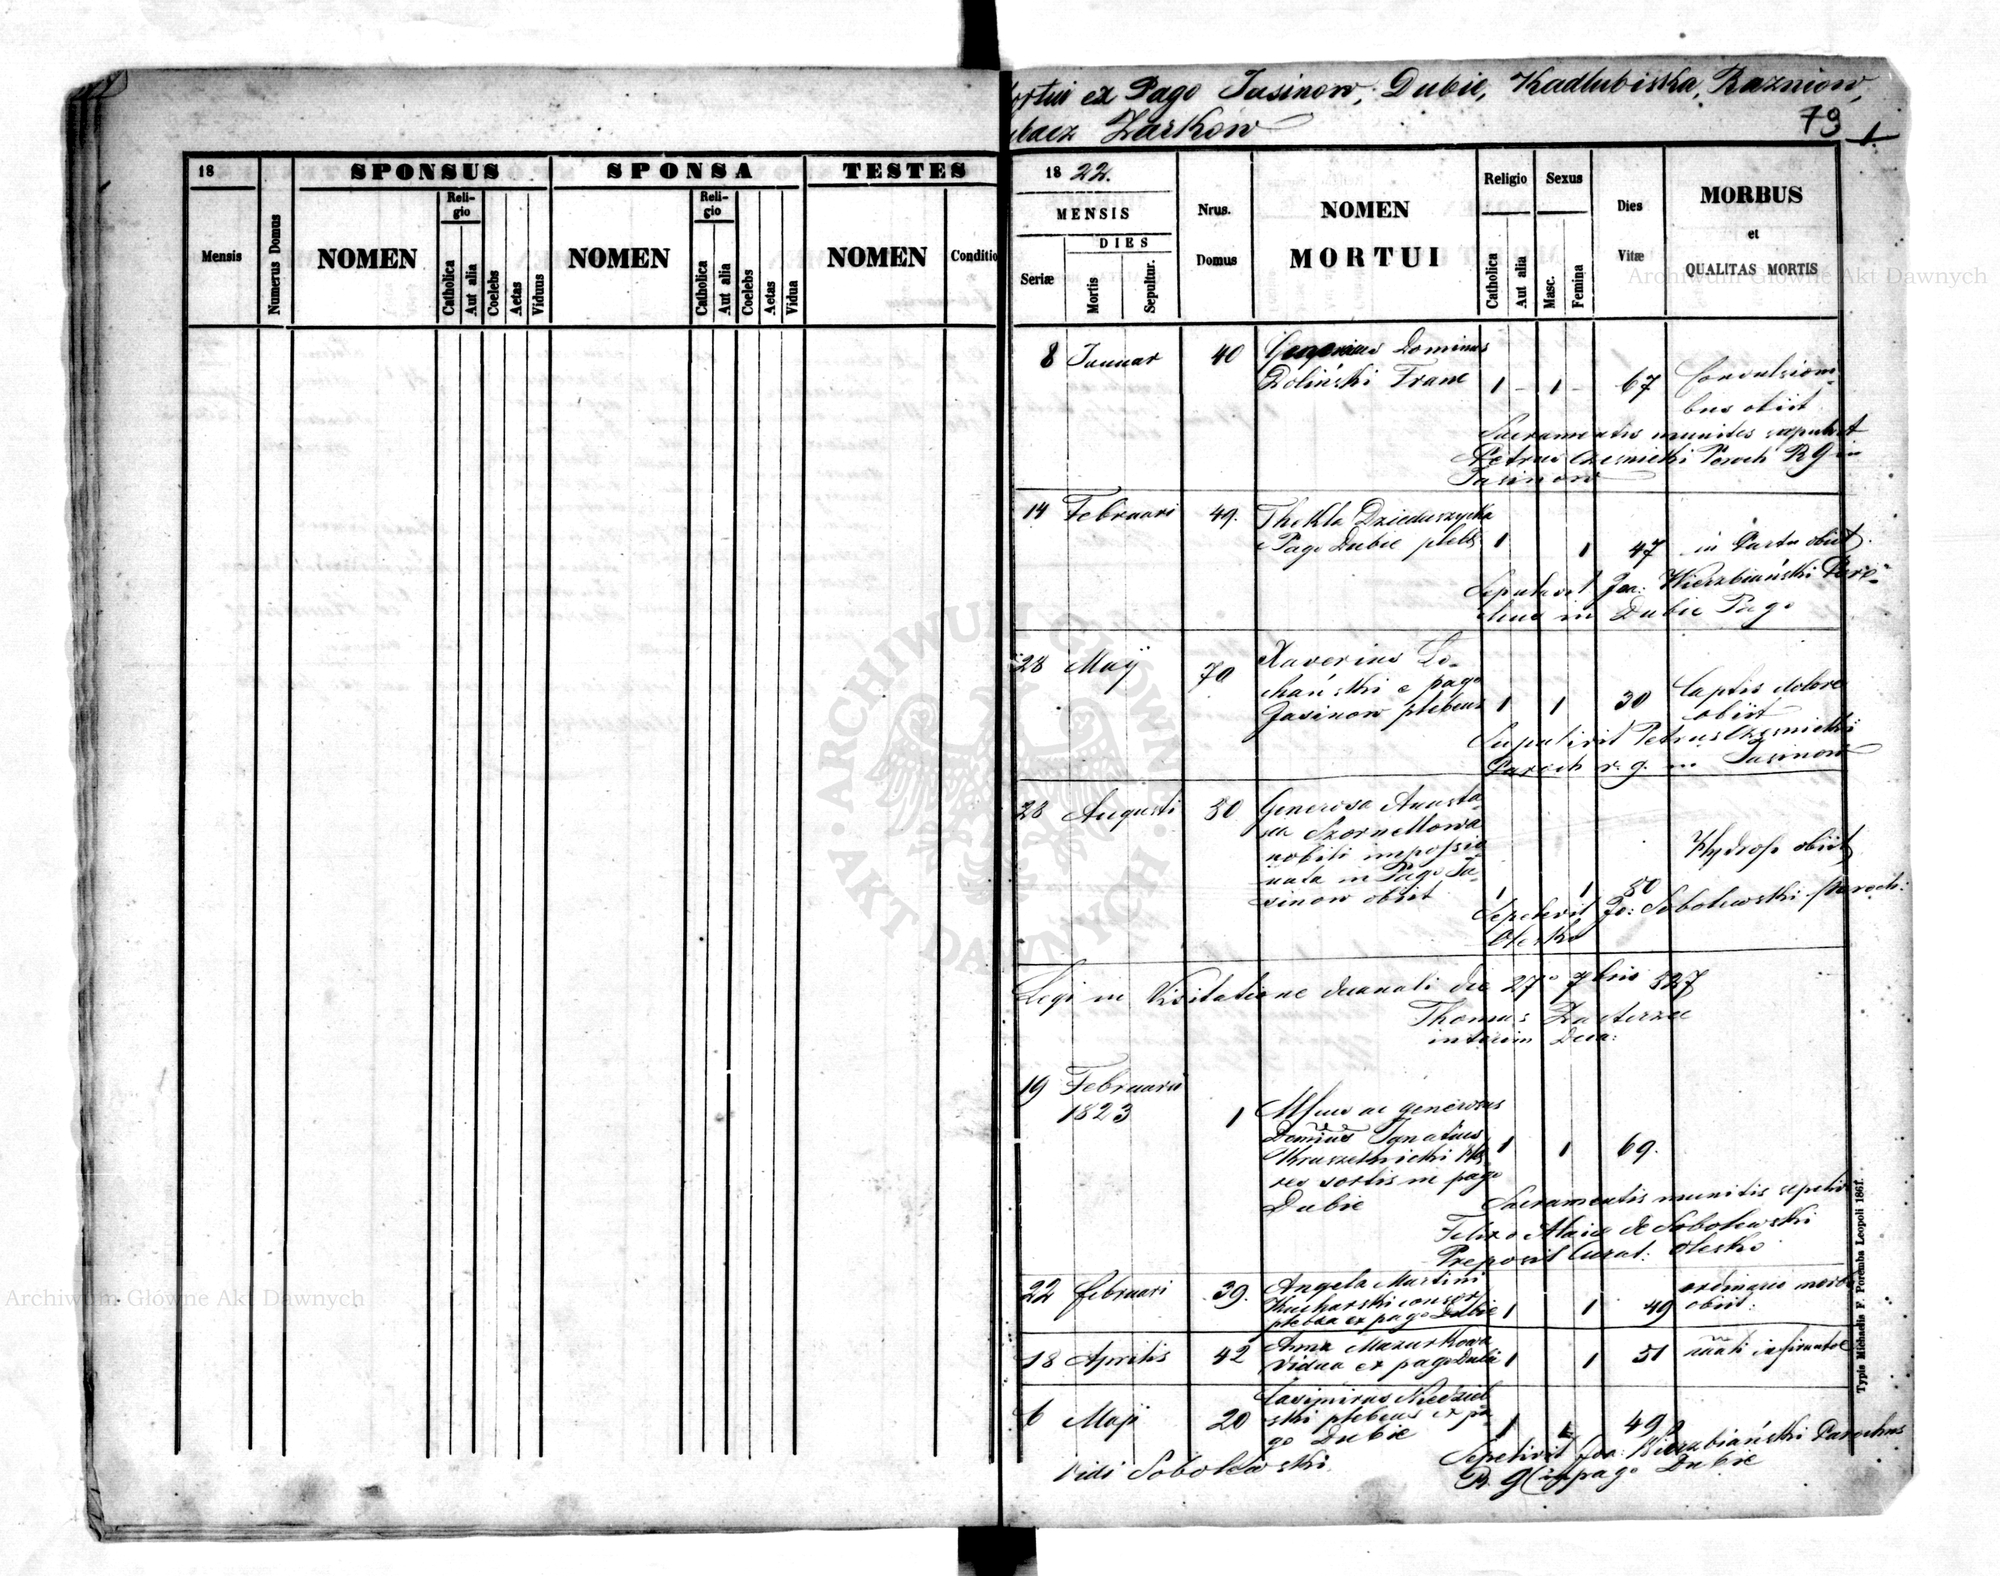 18
SPONSUS
SPONSA
TESTES
Mensis
Numerus Domus
NOMEN
Reli-
gio
Catholica
Aut alia
Coelebs
Aetas
Viduus
NOMEN
Reli-
gio
Catholica
Aut alia
Coelebs
Aetas
Vidua
NOMEN
Conditio
ex Pago Jasinow, Dubie, Kadlubiska, Razniow,
Zarkow
79
1822.
MENSIS
DIES
Seriæ
Mortis
Sepultur.
Nrus.
Domus
NOMEN
MORTUI
Religio
Catholica
Aut alia
Sexus
Masc.
Femina
Dies
Vitæ
MORBUS
et
QUALITAS MORTIS
8 Januar 40 Dominus
Doliński Franc 1 - 1 - 67 Convulsioni-
bus obiit
Sacramentis munitus
Petrus Czesnicki Paroch R G in
Jasinow
14 Februari 49. Thekla Dzieduszycka
e Pago Dubie plebs 1 1 47 in Partu obiit.
Sepelivit Joa: Wierzbiański Paro-
chus in Dubie Pago
28 Maij 70 Xaverius Lo-
chański e pago
Jasinow plebeus 1 1 30 Captis dolore
obiit
Petrus Czesnicki
Paroch r. g. in Jasinow
28 Augusti 30 Generosa Anasta-
Szornellowa
nobili
in Pago Ja-
sinow obiit 1 1 80
obiit
Sepelivit Jo: Sobolewski Paroch:
Olesko
Legi in Visitatione decanali die 27° 7bris 827
Thomas
interim Deca:
19 Februarii
1823 1 ac generosus
Dominus Ignatius
Kruszelnicki
res sortis in pago
Dubie 1 1 69.
Sacramentis munitis sepeliv
de Sobolewski
Preposit Curat: Olesko
22 februari 39. Angela Martini
Kucharski consor
plebea ex pago Dubie 1 1 49 ordinario morbo
obiit:
18 Aprilis 42 Anna Mazurkowa
Vidua ex pago Dubie 1 1 51
6 Maji 20 Casimirus Niedziel
ski plebeus ex pa-
go Dubie 1 1 49
Sepelivit Joa: Wierzbiański Parochus
R. G in pago Dubie
Vidi Sobolewski
Typis Michaelis F. Poremba Leopoli 1861.
ARCHIWUM GŁÓWNE
AKT DAWNYCH
Archiwum Główne Akt Dawnych
Archiwum Główne Akt Dawnych